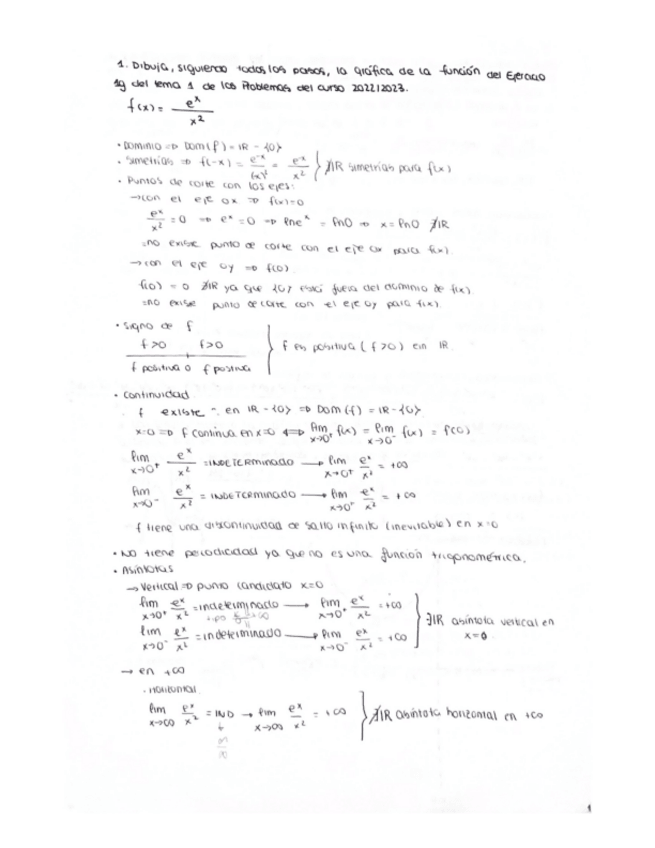 1. Dibuja, siguiendo todos los pasos, la gráfica de la función del Ejercicio
1g del tema 1 de los Problemas del curso 2022/2023.
f(x) = e^x / x^2
• Dominio => Dom(f) = IR - {0}
• Simetrías => f(-x) = e^-x / (-x)^2 = e^-x / x^2 } ∄IR simetrías para f(x)
• Puntos de corte con los ejes:
→ con el eje ox => f(x)=0
e^x / x^2 = 0 => e^x = 0 => ln e^x = ln 0 => x = ln 0 ∄IR
=no existe punto de corte con el eje ox para f(x).
→ con el eje oy => f(0)
f(0) = 0 ∄IR ya que {0} está fuera del dominio de f(x).
=no existe punto de corte con el eje oy para f(x).
• Signo de f
f>0 f>0 } f es positiva (f>0) en IR.
f positiva 0 f positiva
• Continuidad
f existe en IR - {0} => Dom(f) = IR - {0}
x=0 => f continua en x=0 <=> lim x→0+ f(x) = lim x→0- f(x) = f(0)
lim x→0+ e^x / x^2 = INDETERMINADO → lim x→0+ e^x / x^2 = +∞
lim x→0- e^x / x^2 = INDETERMINADO → lim x→0+ e^x / x^2 = +∞
f tiene una discontinuidad de salto infinito (inevitable) en x=0
• No tiene periodicidad ya que no es una función trigonométrica.
• Asíntotas
→ Vertical => punto candidato x=0
lim x→0+ e^x / x^2 = indeterminado → lim x→0+ e^x / x^2 = +∞
lim x→0- e^x / x^2 = indeterminado → lim x→0- e^x / x^2 = +∞ } ∃IR asíntota vertical en x=0
→ en +∞
· Horizontal
lim x→∞ e^x / x^2 = IND → lim x→∞ e^x / x^2 = +∞ } ∄IR asíntota horizontal en +∞
1